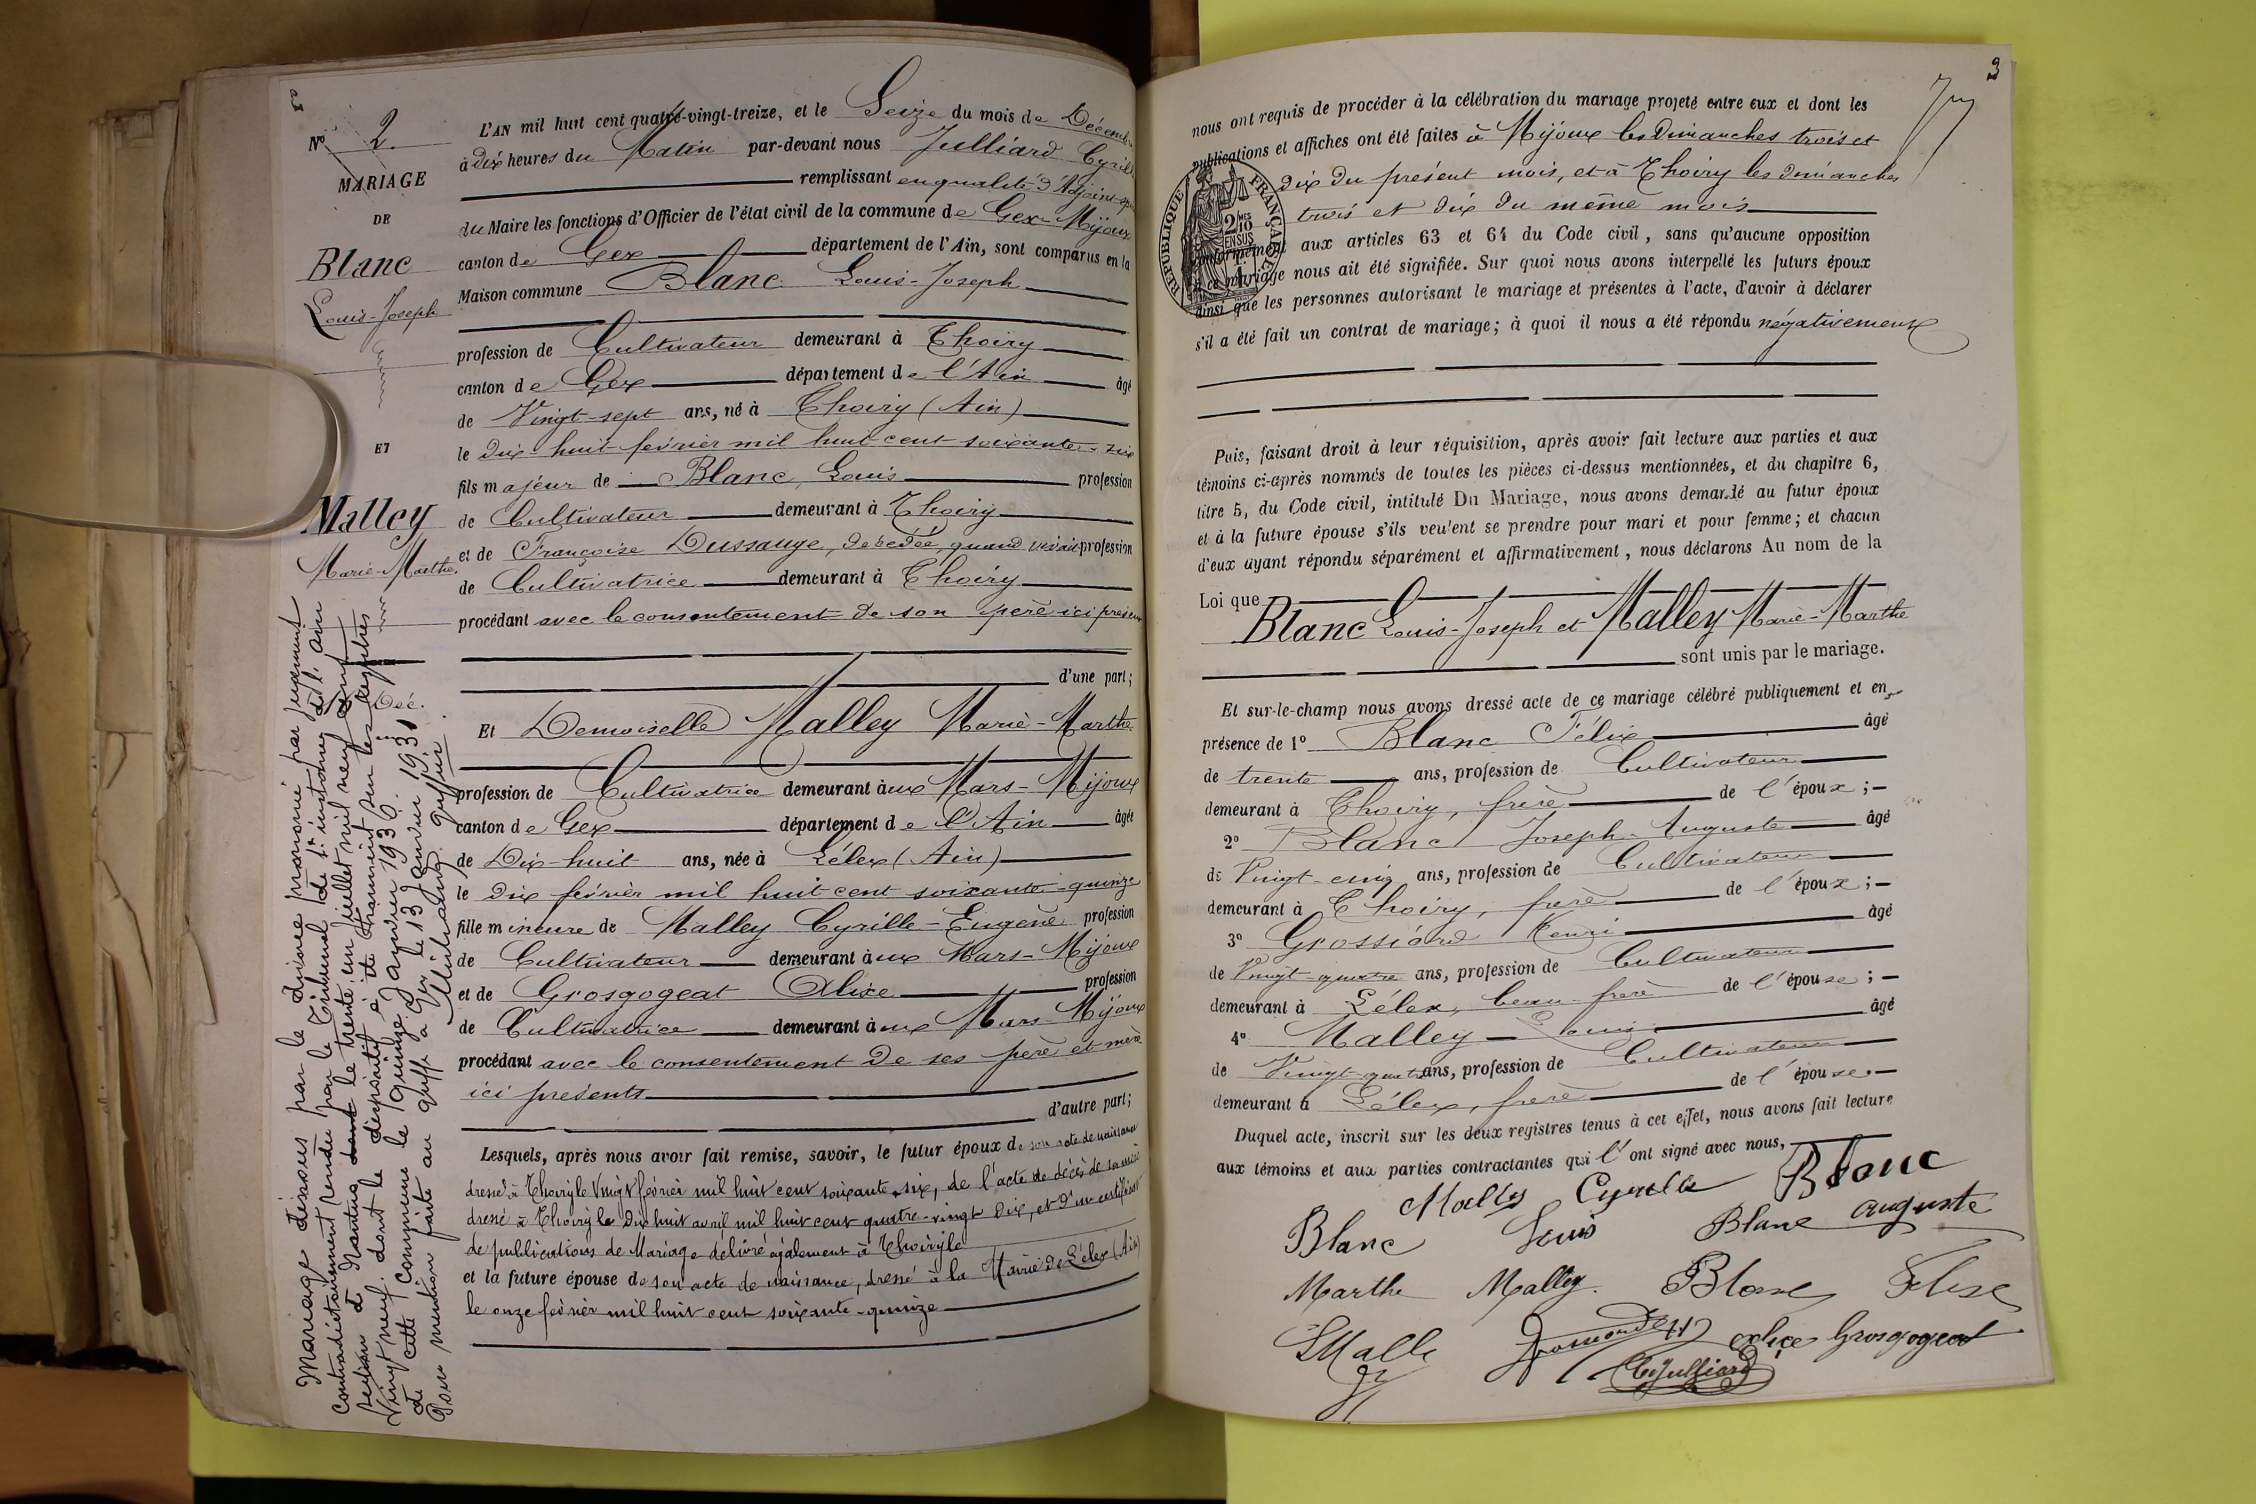 Nº 2.
MARIAGE
DE
Blanc
Louis-Joseph
ET
Malley
Marie-Marthe.
Déc.
Mariage dissous par le divorce prononcé par jugement
contradictoirement rendu par le Tribunal de 1e instance de l'ain
section de Nantua le trente un juillet mil neuf cent
Vingt neuf. dont le dispositif a été transcrit sur les registres
de cette commune le quinze Janvier 1930.
Pour mention faite au greffe à le 13 Janvier 1931
greffier
L'AN mil huit cent quatre-vingt-treize, et le Seize du mois de Décembre
à dix heures du Matin par-devant nous Julliard Cyrille
remplissant en qualité d'Adjoint
du Maire les fonctions d'Officier de l'état civil de la commune de Gex-Mijoux
canton de Gex département de l'Ain, sont comparus en la
Maison commune Blanc Louis-Joseph
profession de Cultivateur demeurant à Thoiry
canton de Gex département de l'Ain âgé
de Vingt-sept ans, né à Thoiry (Ain)
le dix huit février mil huit cent soixante-six
fils majeur de Blanc, Louis profession
de Cultivateur demeurant à Thoiry
et de Françoise Dussauge, décédée, quand vivait profession
de Cultivatrice demeurant à Thoiry
procédant avec le consentement de son père ici présent
d'une part;
Et Demoiselle Malley Marie-Marthe
profession de Cultivatrice demeurant à aux Mars-Mijoux
canton de Gex département de l'Ain âgée
de Dix-huit ans, née à Lélex (Ain)
le dix février mil huit cent soixante-quinze
fille mineure de Malley Cyrille-Eugène profession
de Cultivateur demeurant à aux Mars-Mijoux
et de Grosgogeat Alixe profession
de Cultivatrice demeurant à aux Mars-Mijoux
procédant avec le consentement de ses père et mère
ici présents
d'autre part;
Lesquels, après nous avoir fait remise, savoir, le futur époux de son acte de naissance
dressé à Thoiry le Vingt février mil huit cent soixante-six, de l'acte de décès de sa mère
dressé à Thoiry le Dix huit avril mil huit cent quatre-vingt Dix, et d'un certificat
de publications de Mariage délivré également à Thoiry le
et la future épouse de son acte de naissance, dressé à la Mairie de Lélex (Ain)
le onze février mil huit cent soixante-quinze
3
nous ont requis de procéder à la célébration du mariage projeté entre eux et dont les
publications et affiches ont été faites à Mijoux les Dimanches trois et
dix du présent mois, et à Thoiry les dimanches
trois et dix du même mois
RÉPUBLIQUE FRANÇAISE
2/10 EN SUS
conformément aux articles 63 et 64 du Code civil, sans qu'aucune opposition
à ce mariage nous ait été signifiée. Sur quoi nous avons interpellé les futurs époux
ainsi que les personnes autorisant le mariage et présentes à l'acte, d'avoir à déclarer
s'il a été fait un contrat de mariage; à quoi il nous a été répondu négativement
Puis, faisant droit à leur réquisition, après avoir fait lecture aux parties et aux
témoins ci-après nommés de toutes les pièces ci-dessus mentionnées, et du chapitre 6,
titre 5, du Code civil, intitulé Du Mariage, nous avons demandé au futur époux
et à la future épouse s'ils veulent se prendre pour mari et pour femme; et chacun
d'eux ayant répondu séparément et affirmativement, nous déclarons Au nom de la
Loi que
Blanc Louis-Joseph et Malley Marie-Marthe
sont unis par le mariage.
Et sur-le-champ nous avons dressé acte de ce mariage célébré publiquement et en
présence de 1º Blanc Félix âgé
de trente ans, profession de Cultivateur
demeurant à Thoiry, frère de l'époux;
2º Blanc Joseph-Auguste âgé
de Vingt-cinq ans, profession de Cultivateur
demeurant à Thoiry, frère de l'époux;
3º Grossiord Henri âgé
de Vingt-quatre ans, profession de Cultivateur
demeurant à Lélex, beau-frère de l'épouse;
4º Malley Louis âgé
de Vingt-quatre ans, profession de Cultivateur
demeurant à Lélex, frère de l'épouse.
Duquel acte, inscrit sur les deux registres tenus à cet effet, nous avons fait lecture
aux témoins et aux parties contractantes qui l'ont signé avec nous,
Malley Cyrille Blanc
Blanc Louis Blanc auguste
Marthe Malley. Blanc Felix
LMalley alice Grosgogeat
CyJulliard